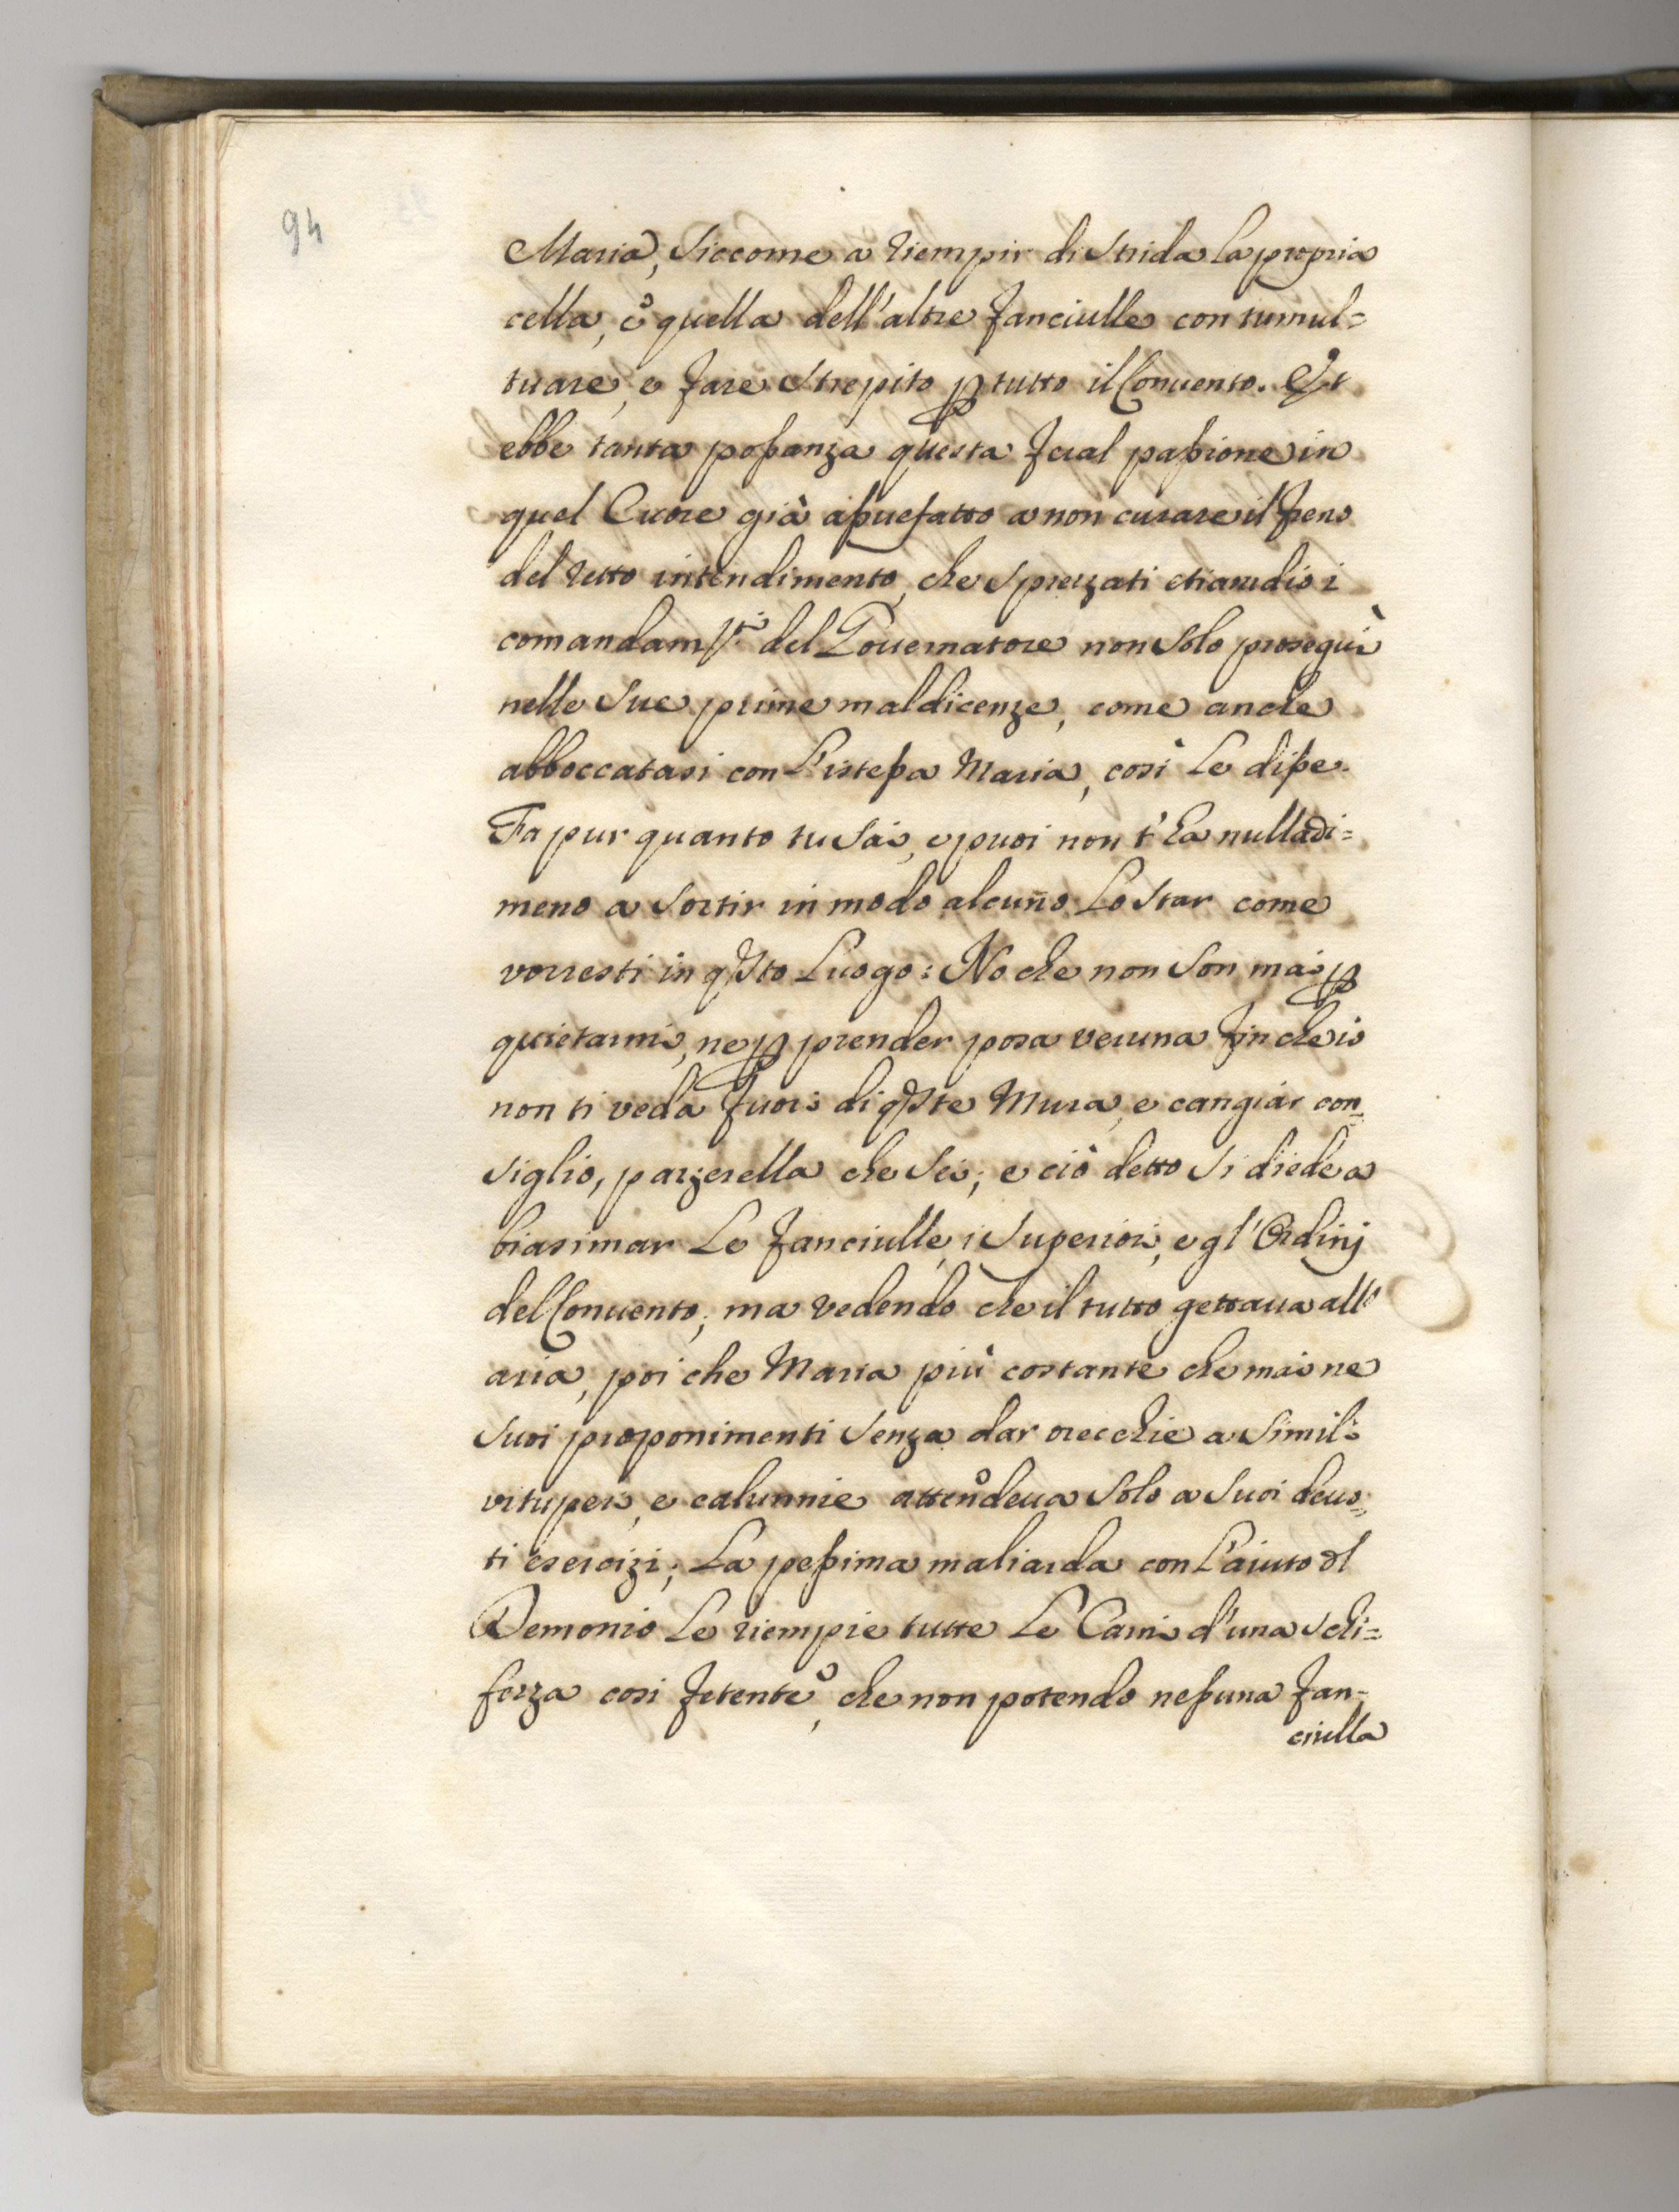 94
Maria, siccome a riempir di strida la propria
cella, e quella dell'altre fanciulle con tumul=
tuare, e fare strepito ꝑ tutto il Conuento. Et
ebbe tanta possanza questa feral passione in
quel Cuore già assuefatto a non curare il freno
del retto intendimento, che sprezzati etiamdio i
comandam.ti del Gouernatore non solo proseguì
nelle sue prime maldicenze, come anche
abboccatasi con l'istessa Maria, così le disse.
Fa pur quanto tu sai, e puoi non t'ha nulladi=
meno a sortir in modo alcuno lo star come
vorresti in qsto luogo: No che non son mai ꝑ
quietarmi, ne ꝑ prender posa veruna fin che io
non ti veda fuori di qste Mura, e cangiar con=
siglio, pazzerella che sei; e ciò detto si diede a
biasimar le fanciulle, i Superiori, e gl'Ordinj
del Conuento; ma vedendo che il tutto gettaua all'
aria, poi che Maria più costante che mai ne
suoi proponimenti senza dar orecchie a simili
vituperi, e calunnie attendeua solo a suoi deuo=
ti esercizi; La pessima maliarda con l'aiuto dl
Demonio le riempie tutte le Carni d'una schi=
fezza cosi fetente, che non potendo nessuna fan=
ciulla